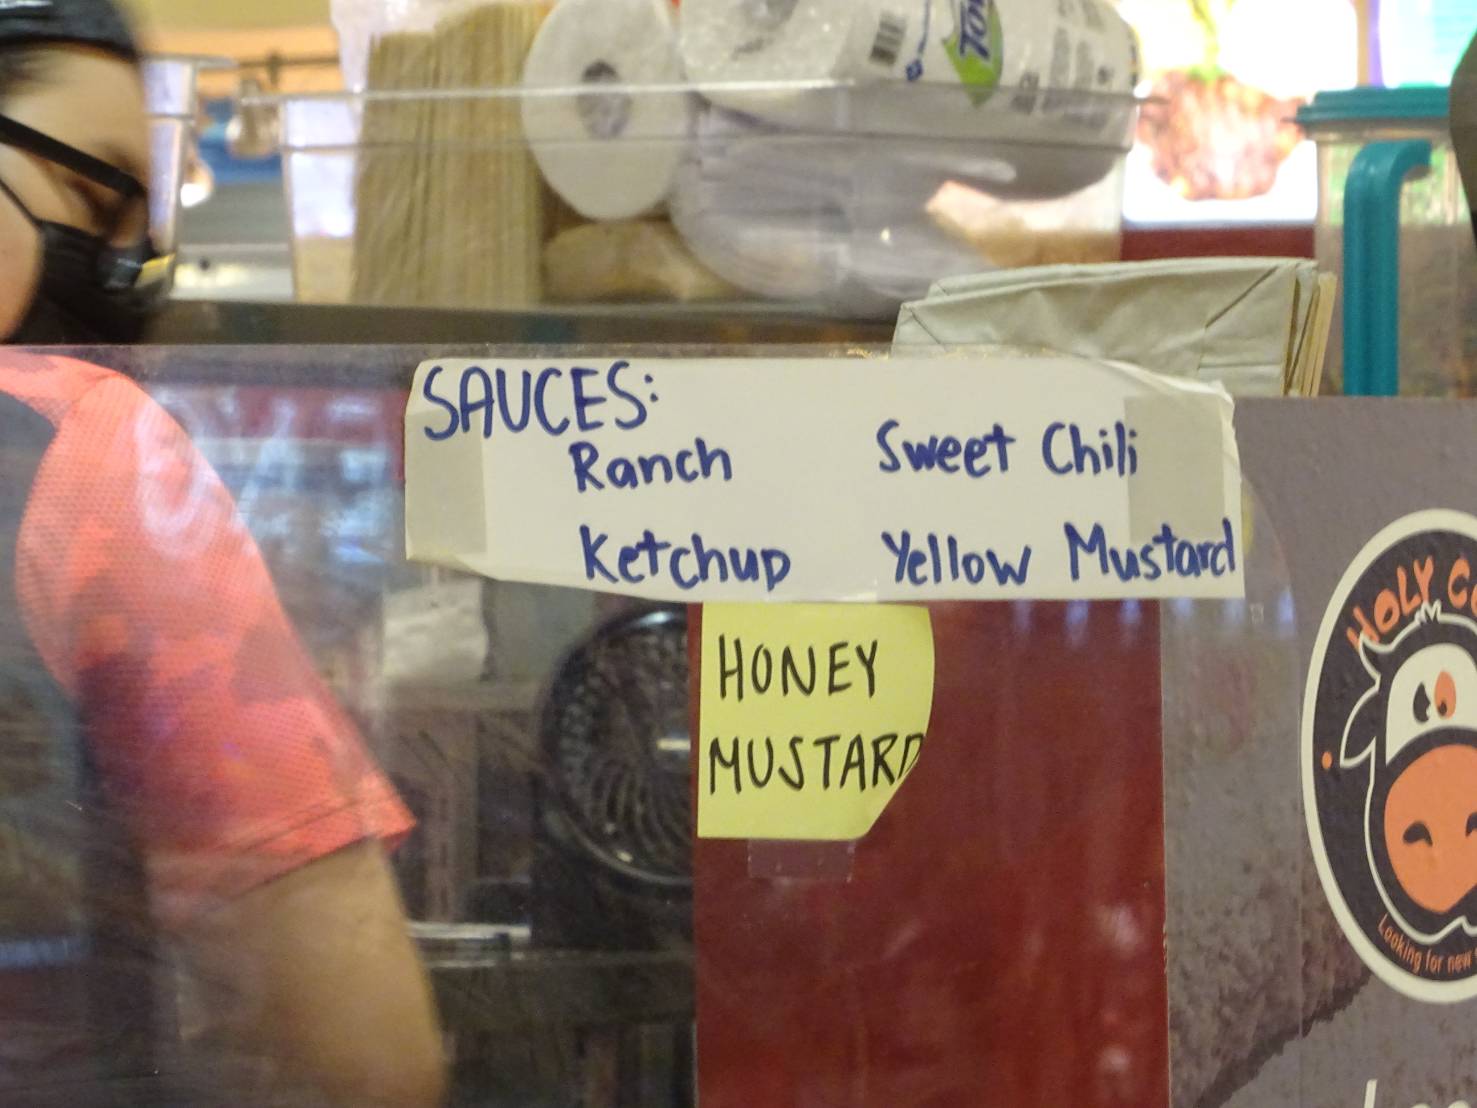 SAUCES:
Ranch
Sweet Chili
Ketchup
Yellow Mustard
HONEY
MUSTARD
HOLY
Looking for new